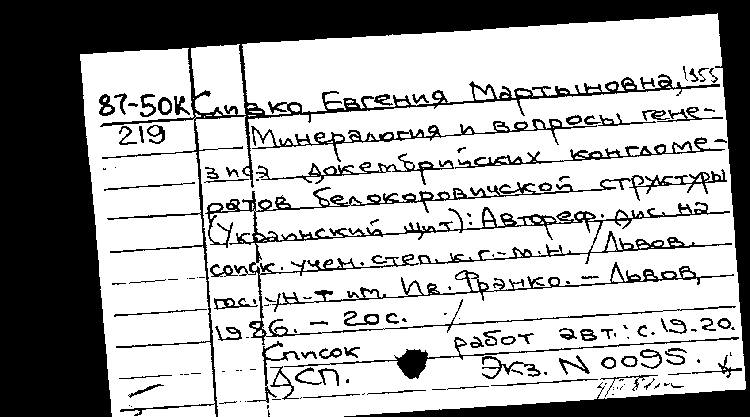 87-50К Сливко, Евгения Мартыновна, 1955
219 Минералогия и вопросы гене-
зиса докембрийских конгломе-
ратов белокоровичской структуры
(Украинский щит): Автореф. дис. на
соиск. учен. степ. к.г.-м.н. / Львов.
гос. ун-т им. Ив. Франко. - Львов,
1986. - 20с.
Список работ авт.: с.19-20.
ДСП. Экз. N 0095.